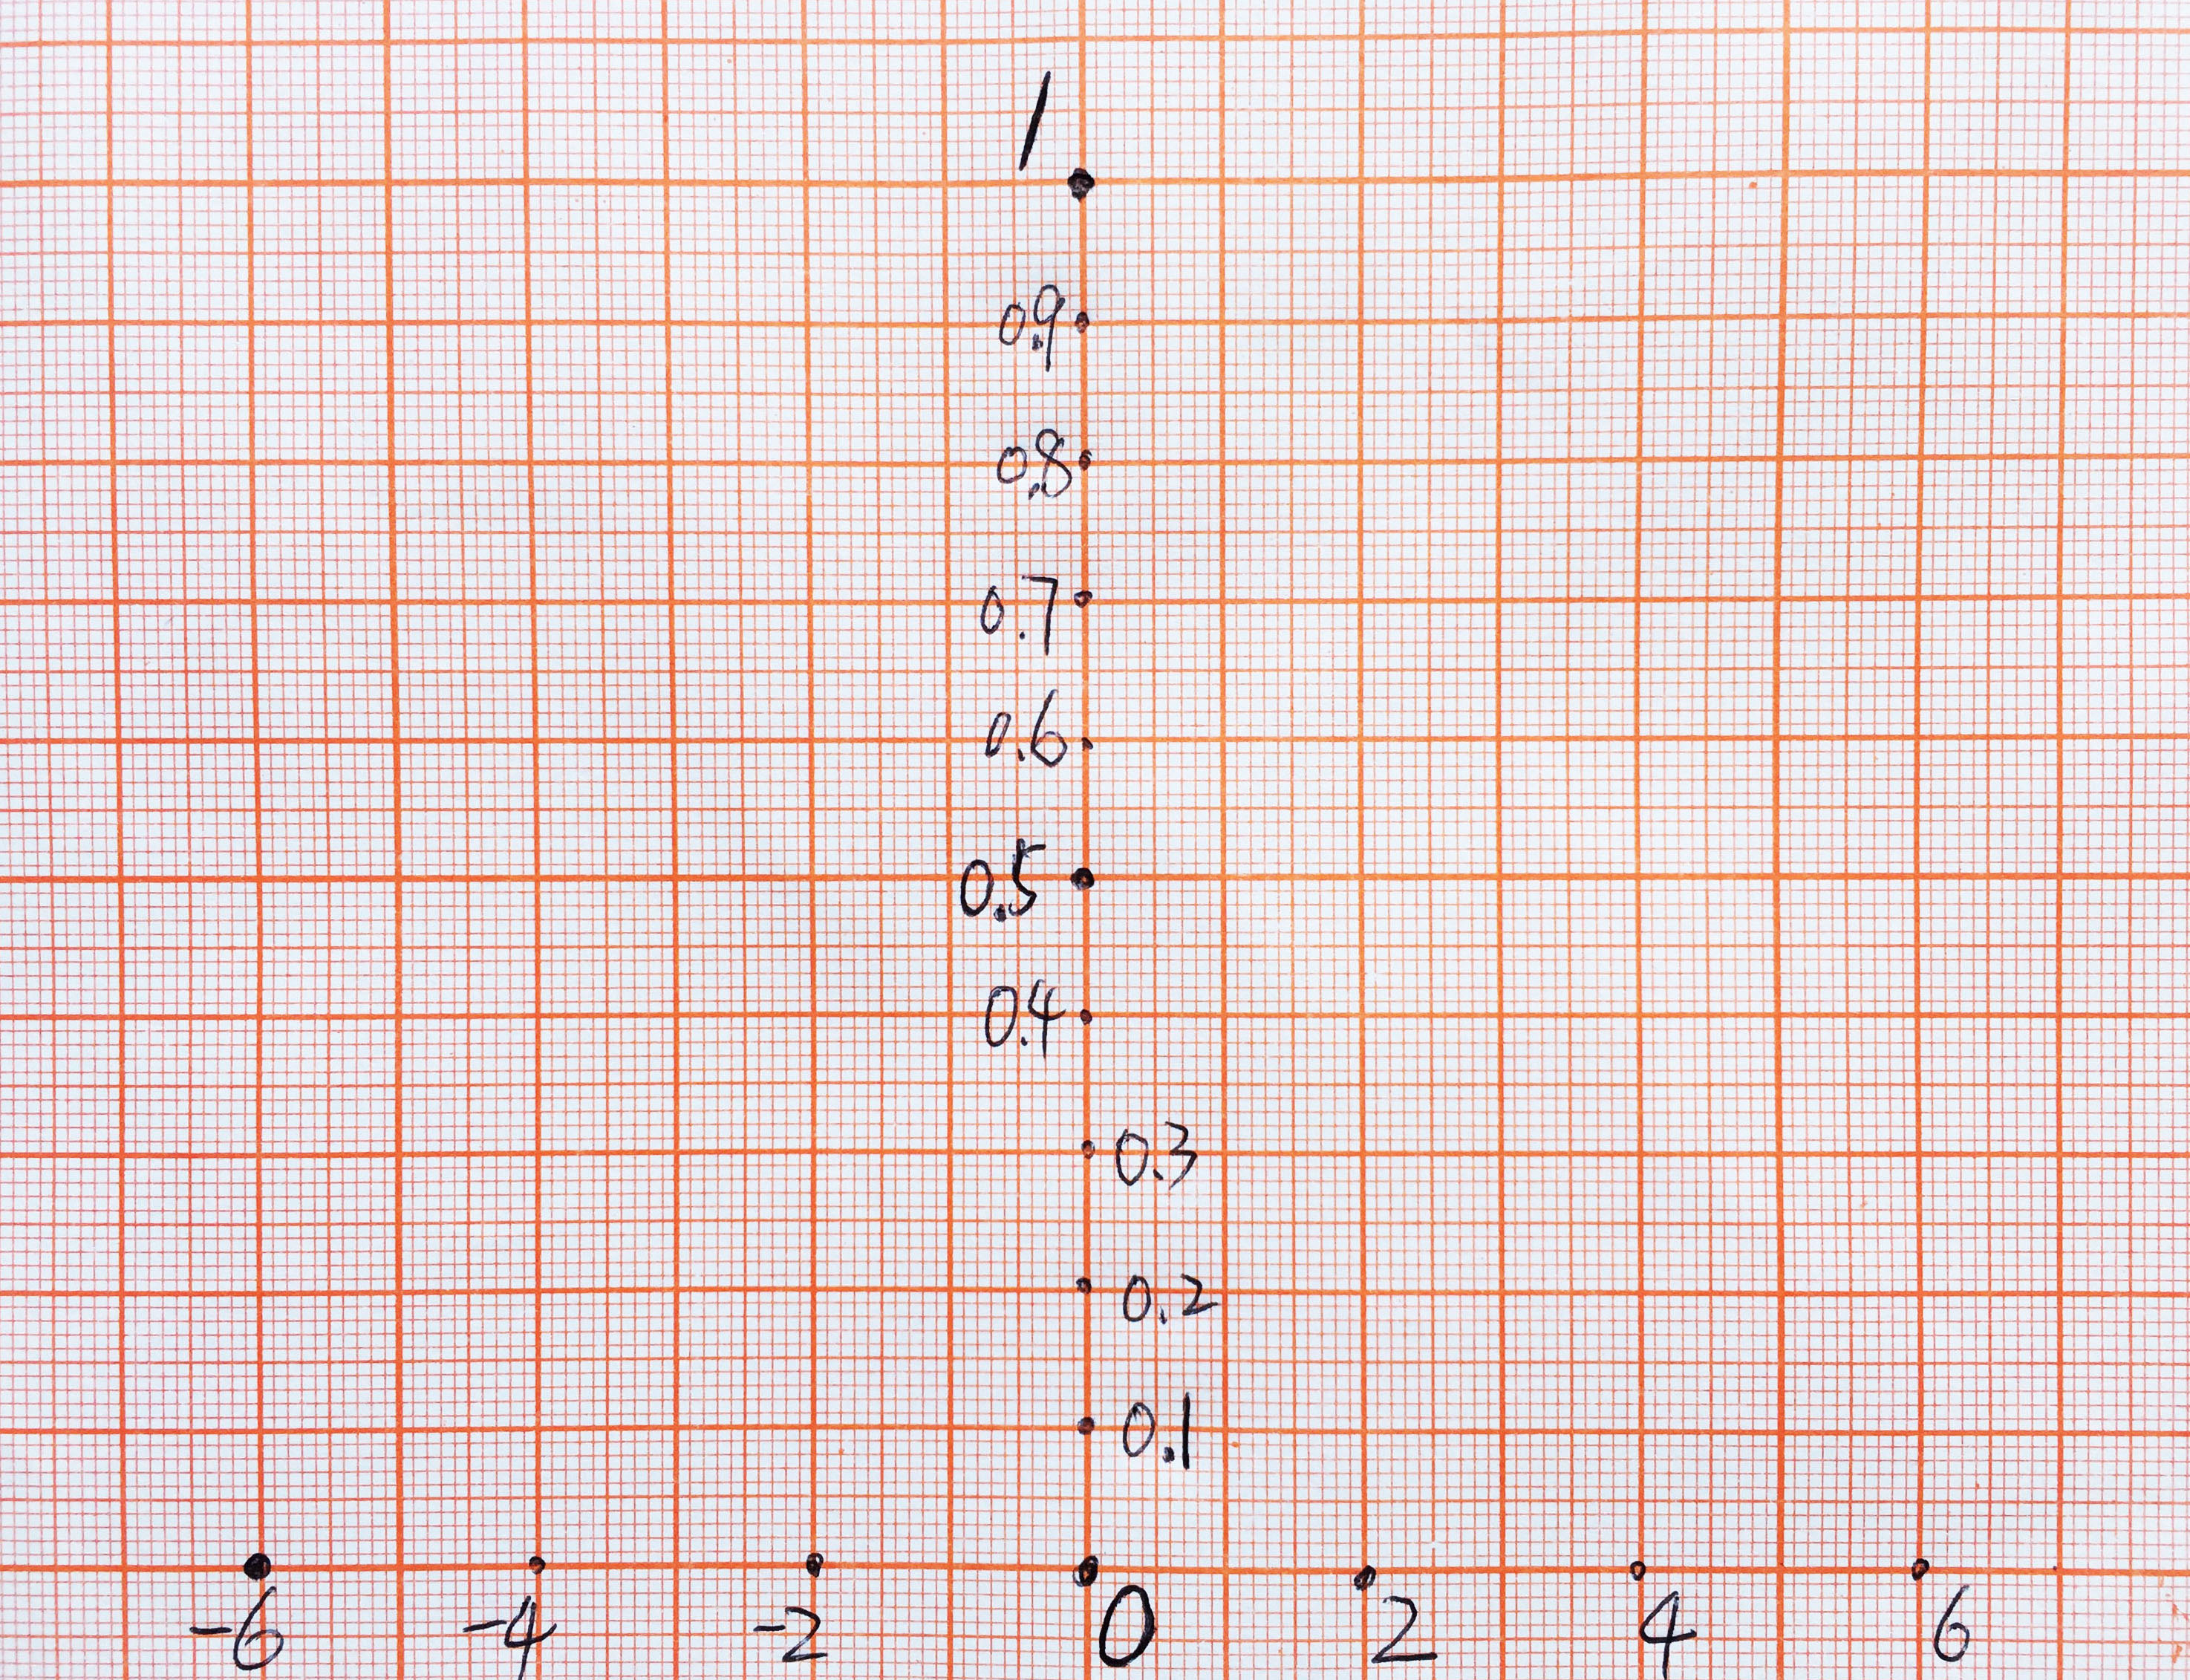 1
0.9
0.8
0.7
0.6
0.5
0.4
0.3
0.2
0.1
-6 -4 -2 0 2 4 6